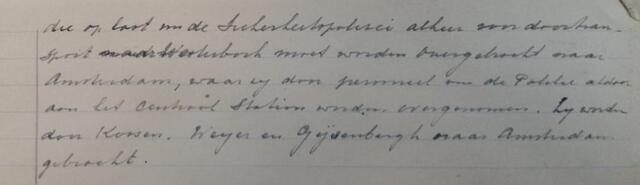 die op last van de Sicherheitspolizei alhier voor doortran-
sport naar Westerbork moet worden overgebracht naar
Amsterdam, waar zij door personeel van de Politie aldaar
aan het Centraal Station worden overgenomen. Zij worden
door Koosen. Weyer en Gijsenbergh naar Amsterdam
gebracht.